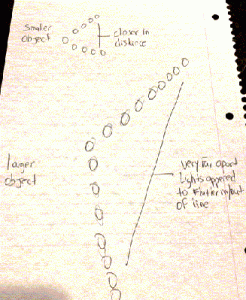 smaller
object
closer in
distance
larger
object
very far apart
Lights appered
to
of line